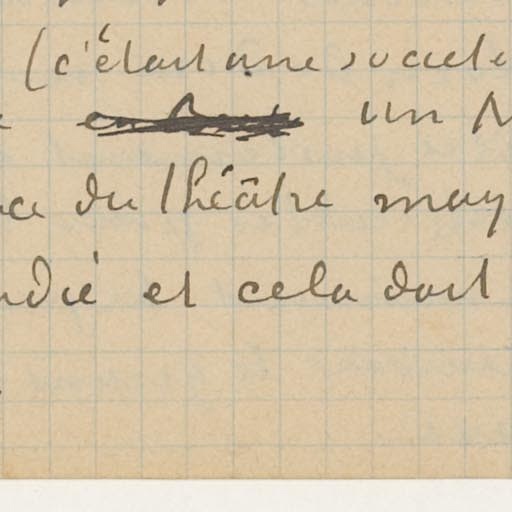 (c'était une société
un
du théâtre may
et cela doit